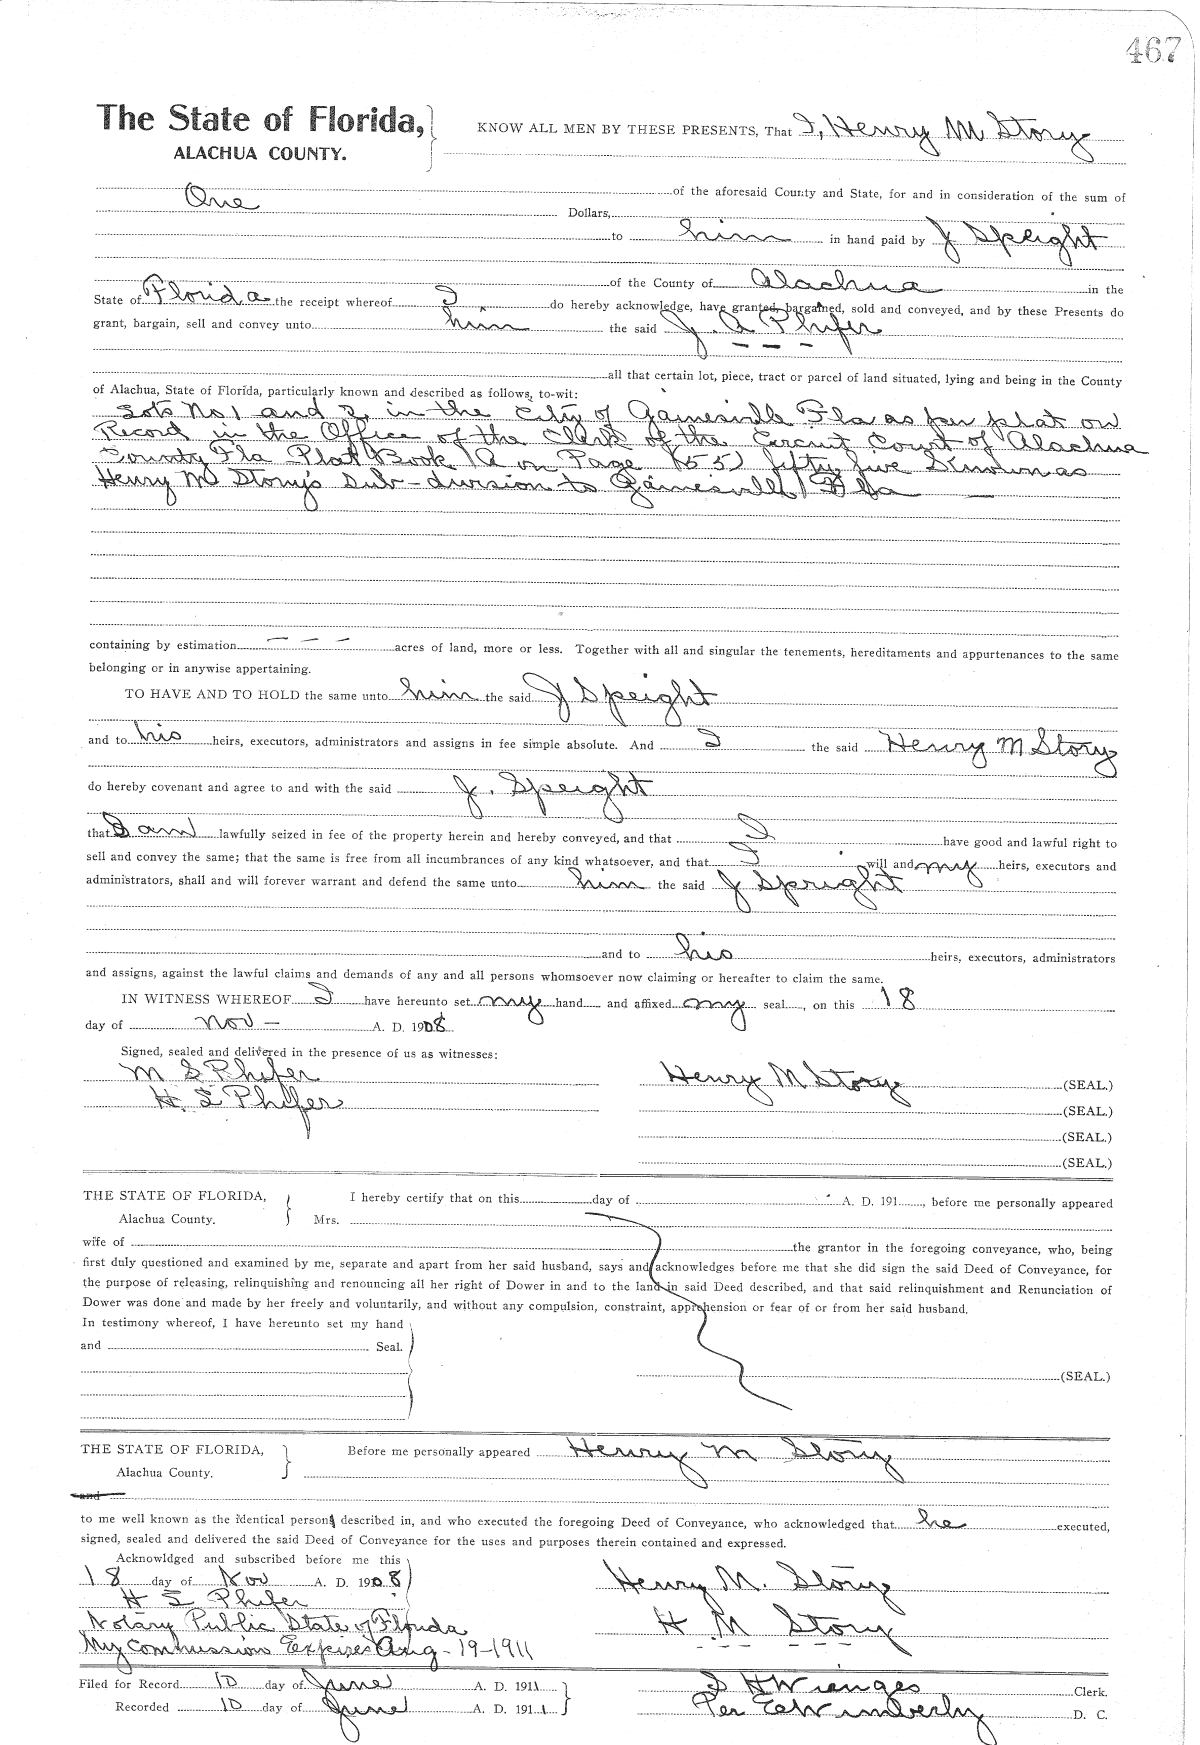 467
The State of Florida,
ALACHUA COUNTY.
KNOW ALL MEN BY THESE PRESENTS, That I, Henry M Story
of the aforesaid County and State, for and in consideration of the sum of
One Dollars,
to him in hand paid by J Speight
of the County of Alachua in the
State of Florida the receipt whereof I do hereby acknowledge, have granted, bargained, sold and conveyed, and by these Presents do
grant, bargain, sell and convey unto him the said J. A Phifer
all that certain lot, piece, tract or parcel of land situated, lying and being in the County
of Alachua, State of Florida, particularly known and described as follows, to-wit:
Lots No 1 and 2, in the City of Gainesville Fla as per plat on
Record in the Office of the Clerk of the Circuit Court of Alachua
County Fla Plat Book A on Page (55) fifty five Known as
Henry M Story's Sub-division to Gainesville Fla
containing by estimation acres of land, more or less. Together with all and singular the tenements, hereditaments and appurtenances to the same
belonging or in anywise appertaining.
TO HAVE AND TO HOLD the same unto him the said J Speight
and to his heirs, executors, administrators and assigns in fee simple absolute. And I the said Henry M Story
do hereby covenant and agree to and with the said J. Speight
that I am lawfully seized in fee of the property herein and hereby conveyed, and that I have good and lawful right to
sell and convey the same; that the same is free from all incumbrances of any kind whatsoever, and that I will and my heirs, executors and
administrators, shall and will forever warrant and defend the same unto him the said J Speight
and to his heirs, executors, administrators
and assigns, against the lawful claims and demands of any and all persons whomsoever now claiming or hereafter to claim the same.
IN WITNESS WHEREOF I have hereunto set my hand and affixed my seal, on this 18
day of Nov - A. D. 1908
Signed, sealed and delivered in the presence of us as witnesses:
M S Phifer
Henry M Story (SEAL.)
H. L Phifer
(SEAL.)
(SEAL.)
(SEAL.)
THE STATE OF FLORIDA,
Alachua County.
I hereby certify that on this day of A. D. 191, before me personally appeared
Mrs.
wife of the grantor in the foregoing conveyance, who, being
first duly questioned and examined by me, separate and apart from her said husband, says and acknowledges before me that she did sign the said Deed of Conveyance, for
the purpose of releasing, relinquishing and renouncing all her right of Dower in and to the land in said Deed described, and that said relinquishment and Renunciation of
Dower was done and made by her freely and voluntarily, and without any compulsion, constraint, apprehension or fear of or from her said husband.
In testimony whereof, I have hereunto set my hand
and Seal.
(SEAL.)
THE STATE OF FLORIDA,
Alachua County.
Before me personally appeared Henry M Story
and
to me well known as the identical persons described in, and who executed the foregoing Deed of Conveyance, who acknowledged that he executed,
signed, sealed and delivered the said Deed of Conveyance for the uses and purposes therein contained and expressed.
Acknowldged and subscribed before me this
18 day of Nov A. D. 1908
Henry M. Story
H L Phifer
Notary Public State of Florida
H M Story
My Commission Expires Aug - 19-1911
Filed for Record 10 day of June A. D. 1911
S H Wienges Clerk.
Recorded 10 day of June A. D. 1911
Per E W Wimberly D. C.